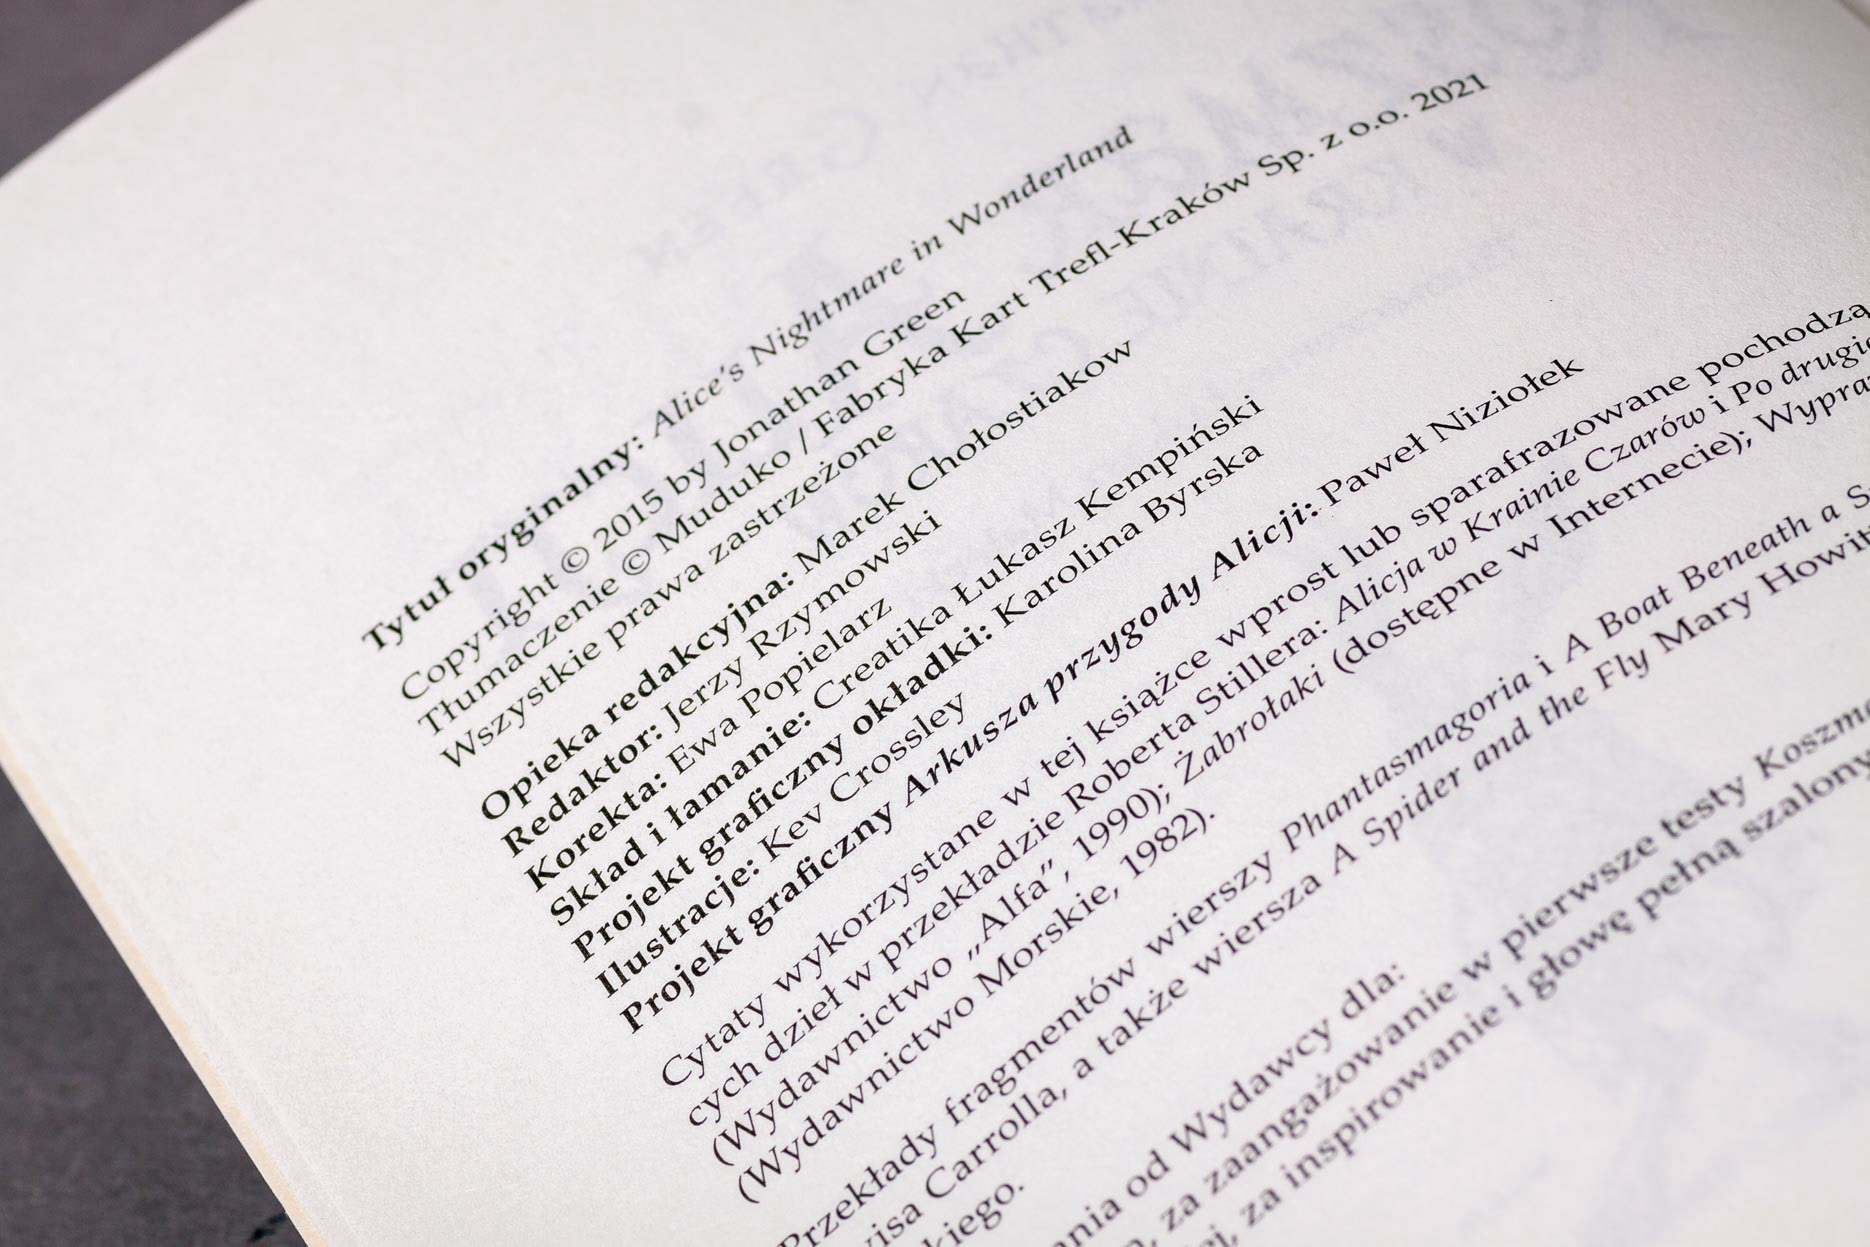 Tytuł oryginalny: Alice's Nightmare in Wonderland
Copyright © 2015 by Jonathan Green
Tłumaczenie © Muduko / Fabryka Kart Trefl-Kraków Sp. z o.o. 2021
Wszystkie prawa zastrzeżone
Opieka redakcyjna: Marek Chołostiakow
Redaktor: Jerzy Rzymowski
Korekta: Ewa Popielarz
Skład i łamanie: Creatika Łukasz Kempiński
Projekt graficzny okładki: Karolina Byrska
Ilustracje: Kev Crossley
Projekt graficzny Arkusza przygody Alicji: Paweł Niziołek
Cytaty wykorzystane w tej książce wprost lub sparafrazowane pochodzą
cych dzieł w przekładzie Roberta Stillera: Alicja w Krainie Czarów i Po drugie
(Wydawnictwo „Alfa”, 1990); Żabrołaki (dostępne w Internecie); Wypra
(Wydawnictwo Morskie, 1982).
Przekłady fragmentów wierszy Phantasmagoria i A Boat Beneath a S
visa Carrolla, a także wiersza A Spider and the Fly Mary Howit
kiego.
ania od Wydawcy dla:
za zaangażowanie w pierwsze testy Koszm
ej, za inspirowanie i głowę pełną szalony